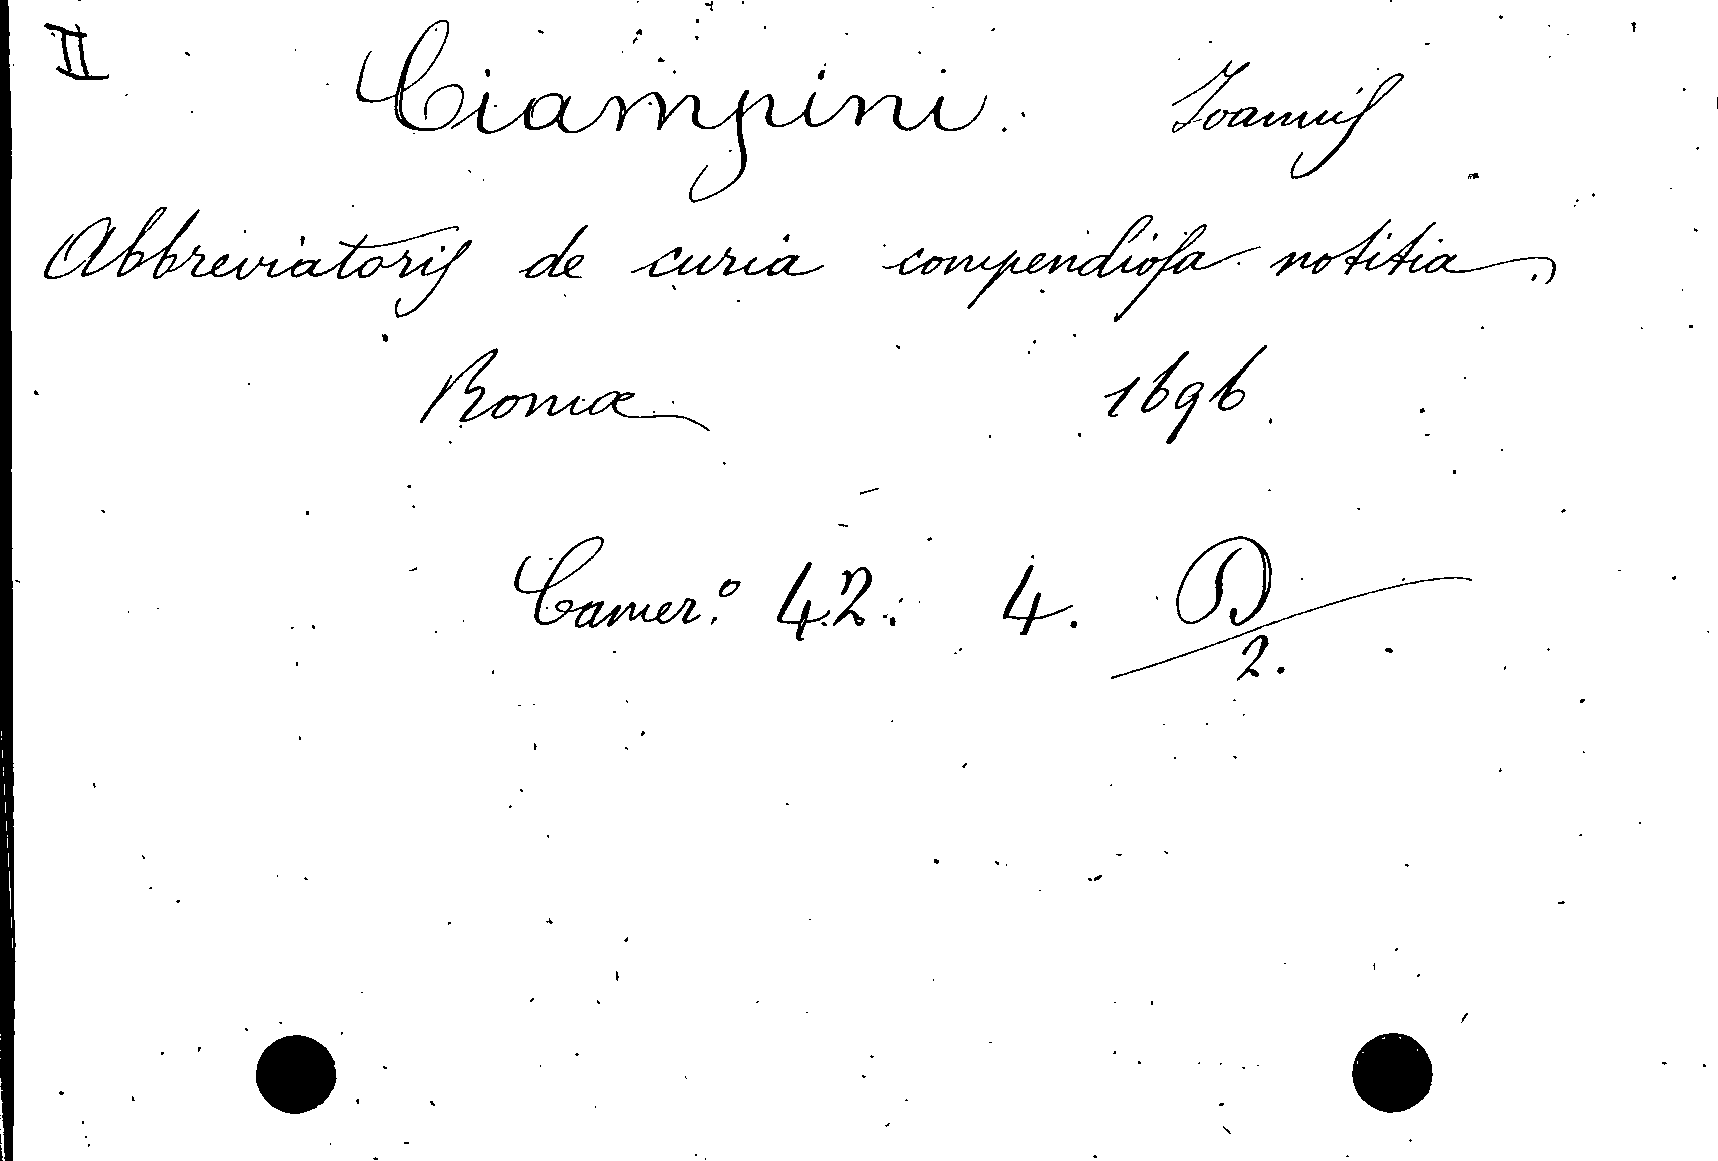 II Ciampini. Joannis
Abbreviatoris de curia compendiosa notitia.
Romæ 1696.
Camer.º 42. 4. D
2.